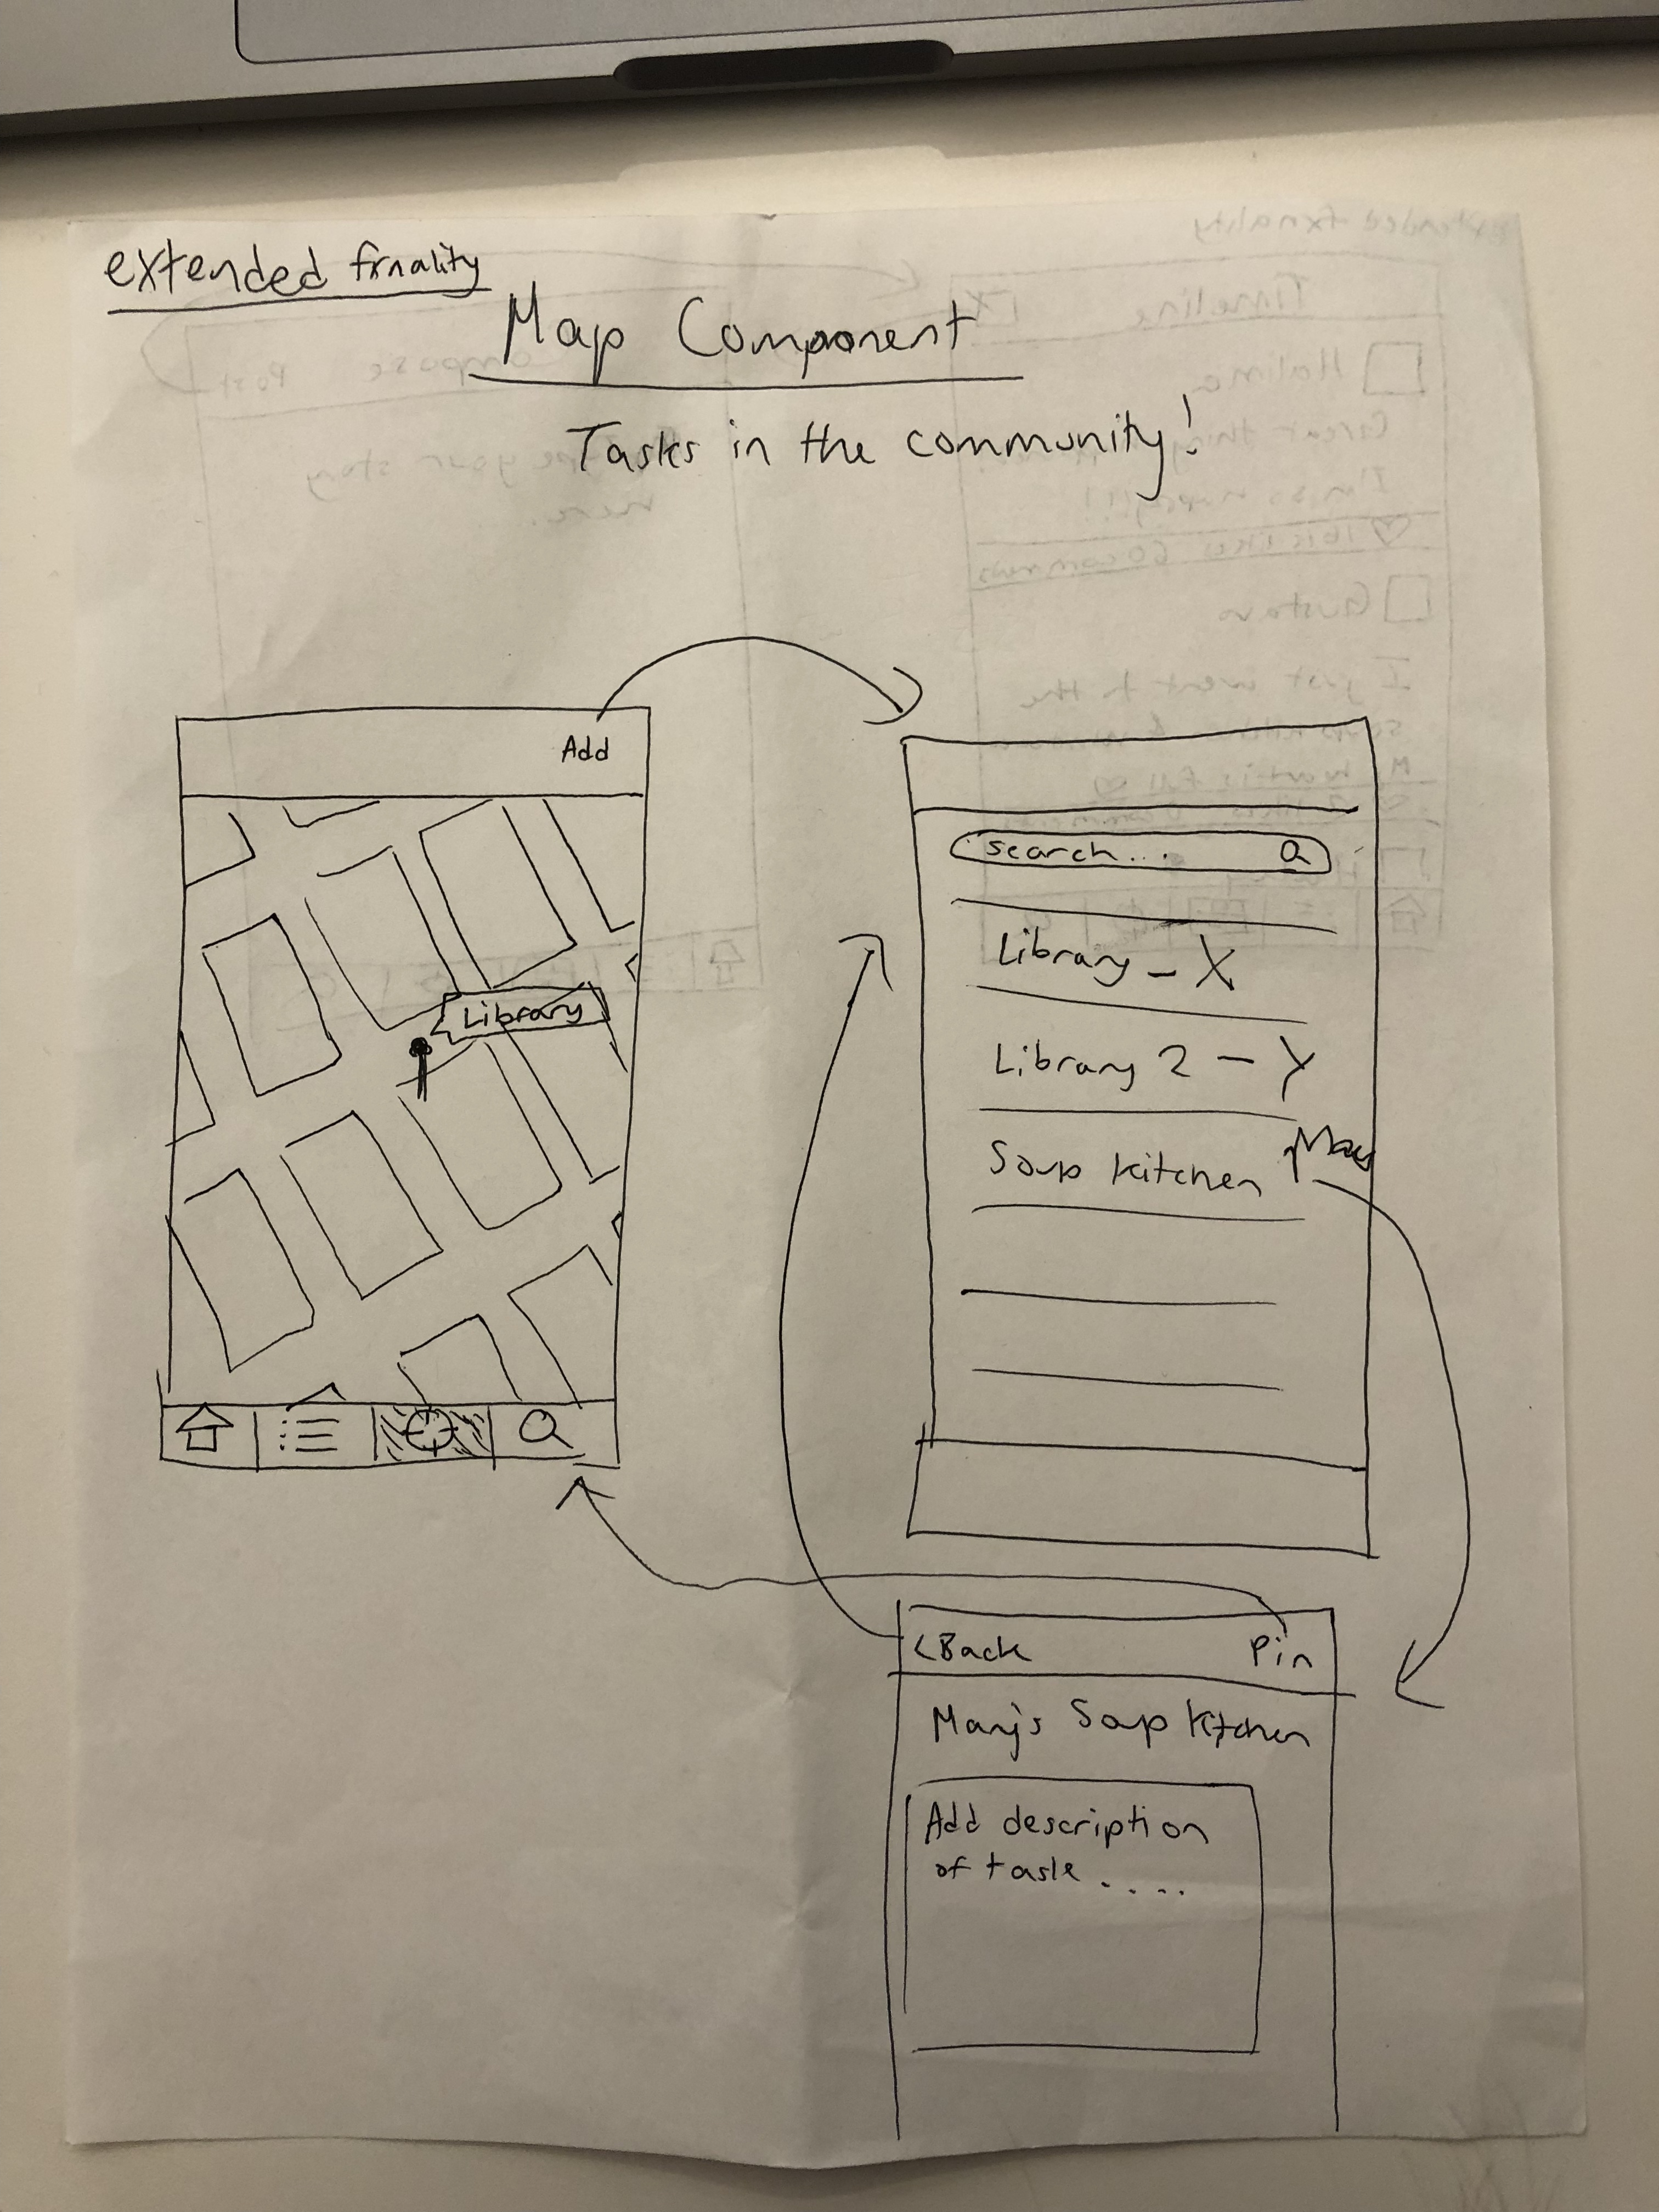 extended fxnality
Map Component
Tasks in the community!
Add
Library
search...
Library - X
Library 2 - Y
Soup Kitchen
<Back Pin
Mary's Soup Kitchen
Add description
of task ....